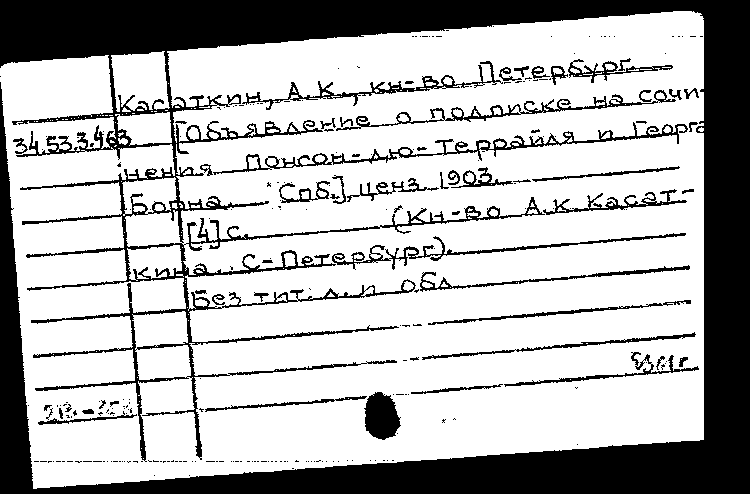 Касаткин, А. К., кн-во. Петербург.
34.53.3.463 [Объявление о подписке на сочи-
нения Понсон-дю-Террайля и Георга
Борна. Спб.], ценз. 1903.
[4] с. (Кн-во А.К. Касат-
кина. С-Петербург).
Без тит. л. и обл